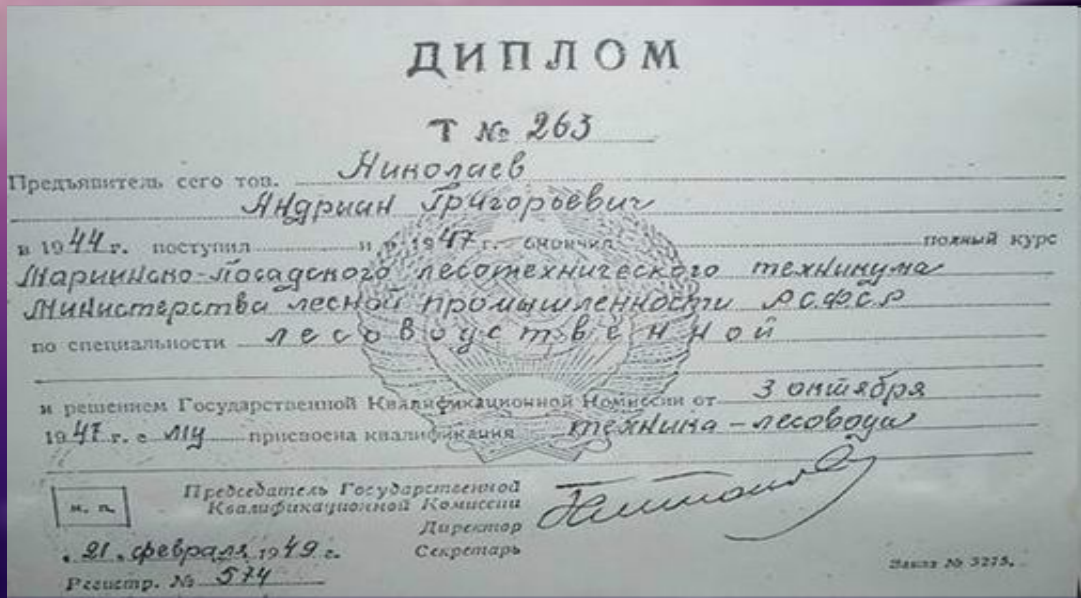 ДИПЛОМ
Т № 263
Предъявитель сего тов. Николаев
Андриан Григорьевич
в 1944 г. поступил и в 1947 г. окончил полный курс
Мариинско-Посадского лесотехнического техникума
Министерства лесной промышленности РСФСР
по специальности лесовоуственной
и решением Государственной Квалификационной Комиссии от 3 октября
1947 г. с/му присвоена квалификация техника-лесовода
Председатель Государственной
м. п. Квалификационной Комиссии
Директор
21 февраля 1949 г. Секретарь
Регистр. № 574
Заказ № 3275.